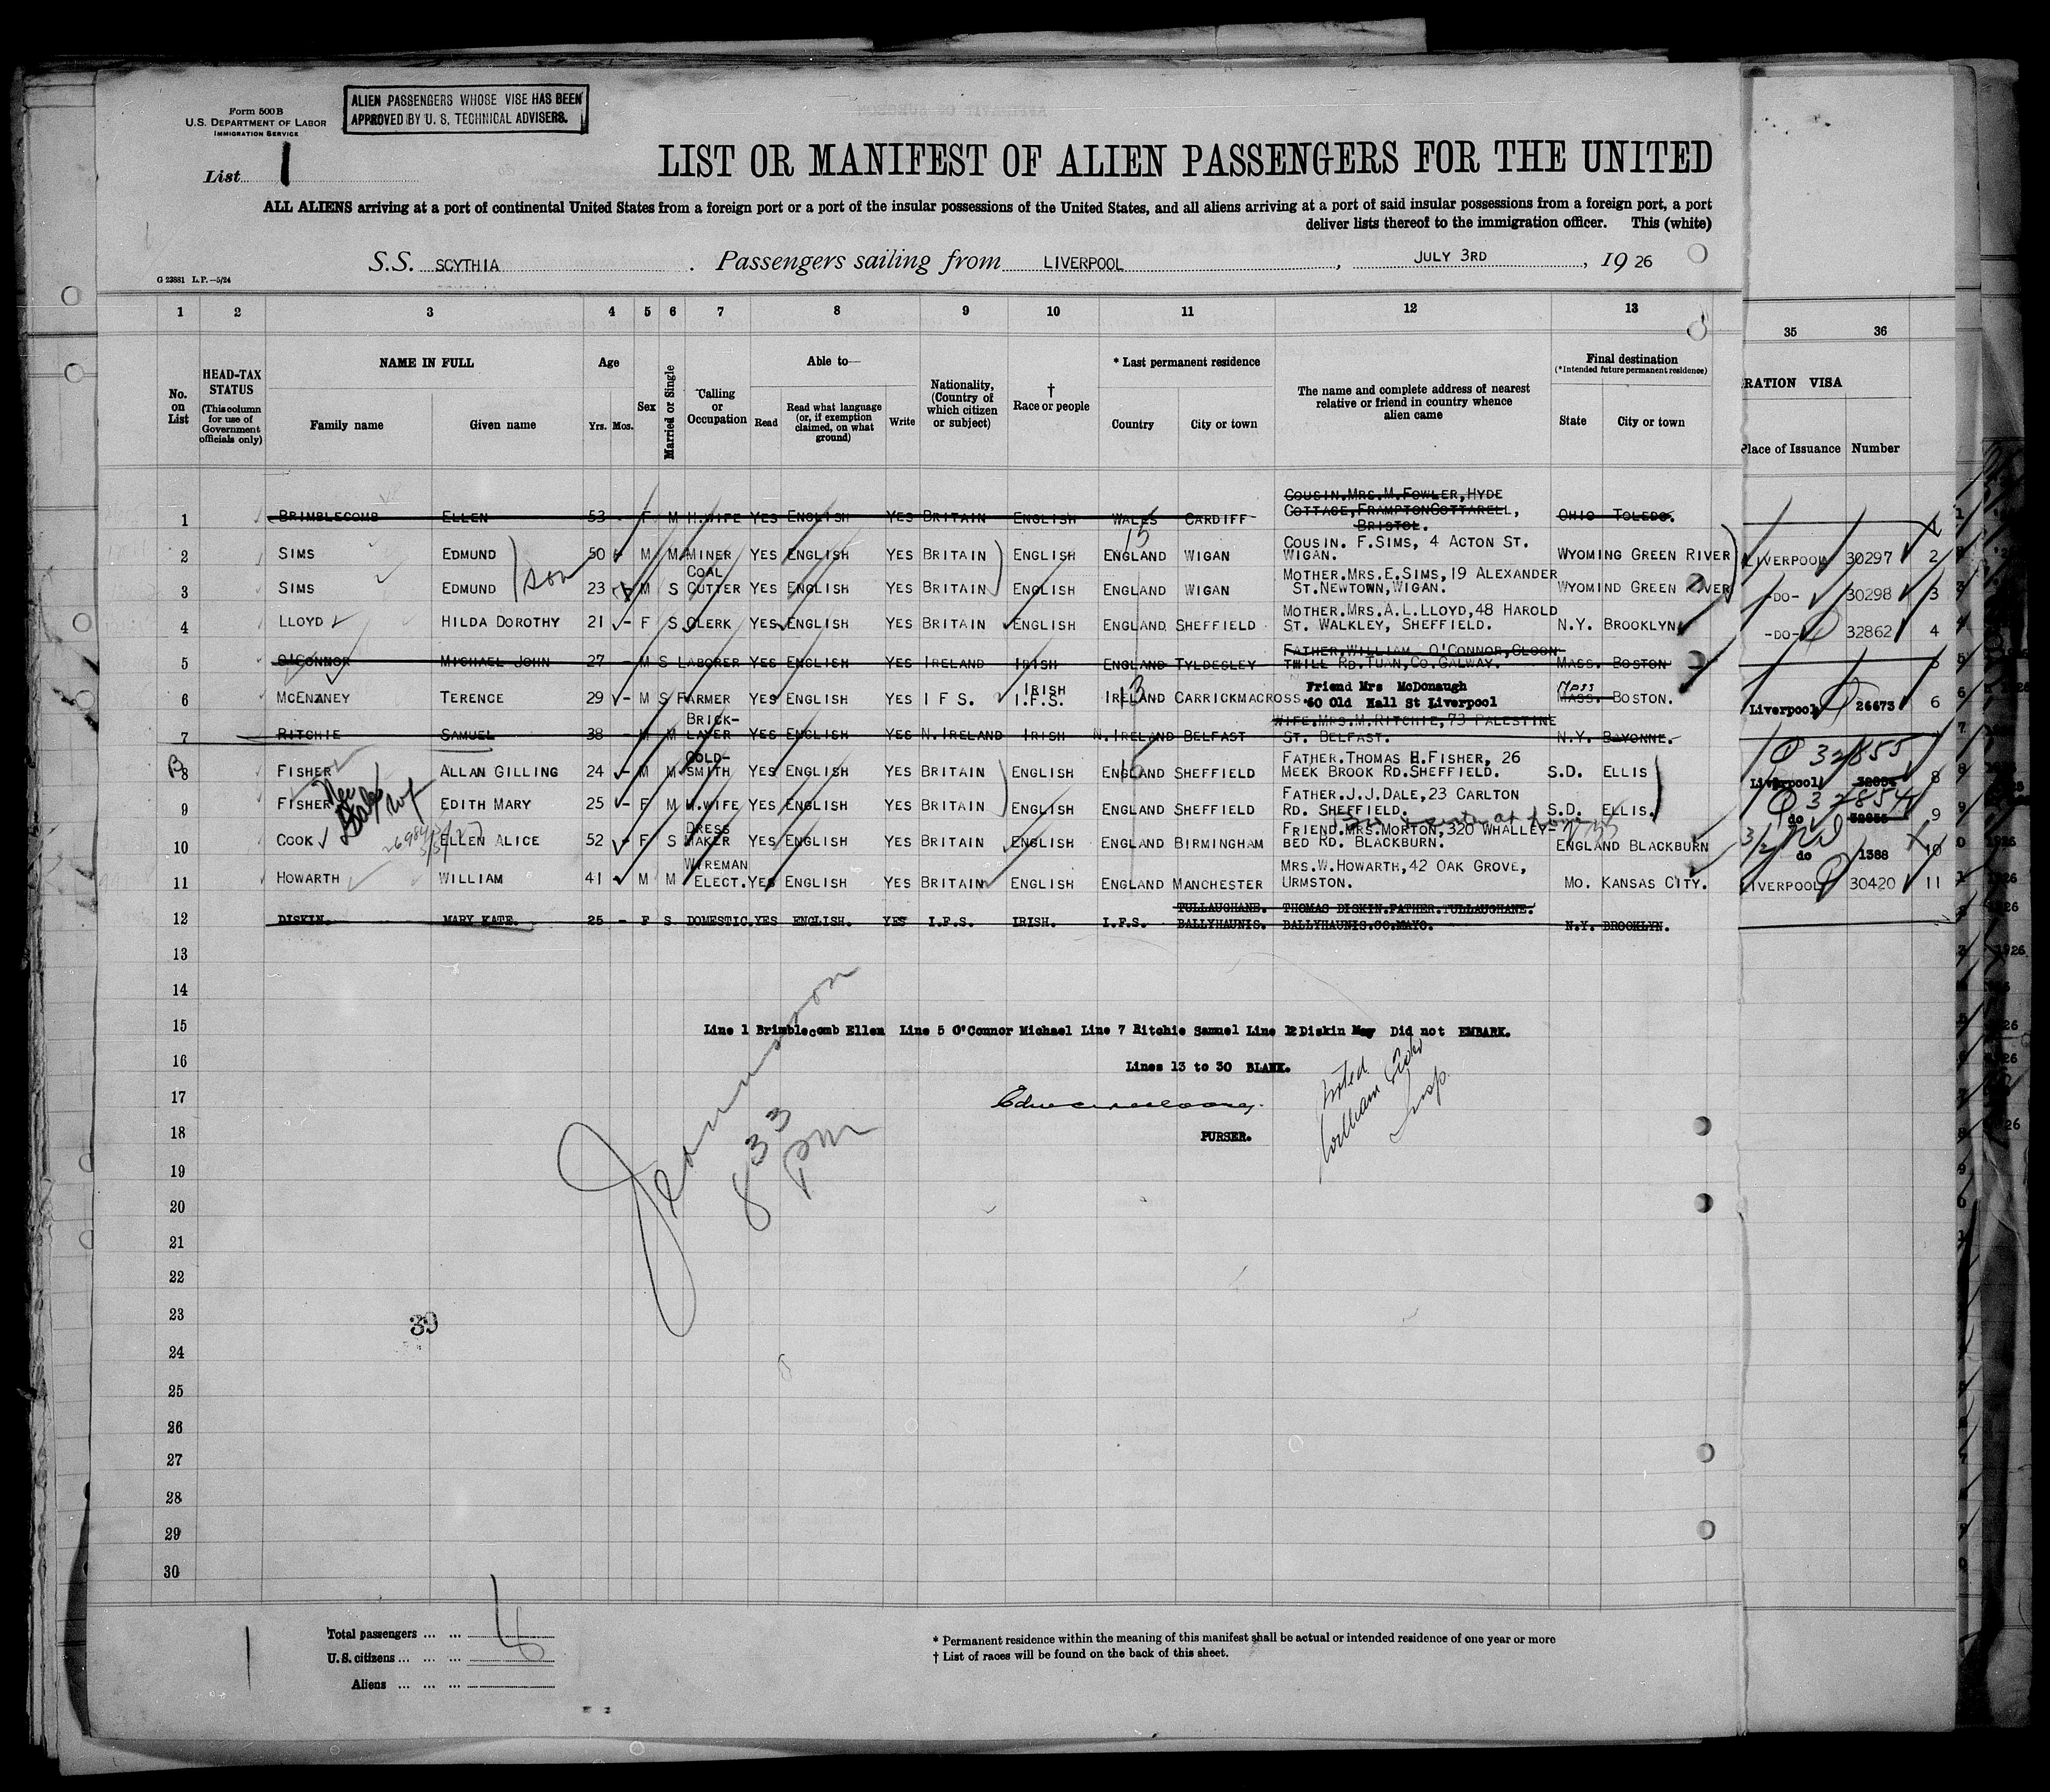 Form 500 B
U.S. DEPARTMENT OF LABOR
IMMIGRATION SERVICE
ALIEN PASSENGERS WHOSE VISE HAS BEEN
APPROVED BY U. S. TECHNICAL ADVISERS.
List 1
LIST OR MANIFEST OF ALIEN PASSENGERS FOR THE UNITED
ALL ALIENS arriving at a port of continental United States from a foreign port or a port of the insular possessions of the United States, and all aliens arriving at a port of said insular possessions from a foreign port, a port
deliver lists thereof to the immigration officer. This (white)
S.S. SCYTHIA. Passengers sailing from LIVERPOOL, JULY 3RD, 19 26
G 23881 L.P.—5/24
1 2 3 4 5 6 7 8 9 10 11 12 13 35 36
No. on List
HEAD-TAX STATUS
(This column for use of Government officials only)
NAME IN FULL
Family name Given name
Age
Yrs. Mos.
Sex
Married or Single
Calling or Occupation
Able to—
Read
Read what language (or, if exemption claimed, on what ground)
Write
Nationality, (Country of which citizen or subject)
† Race or people
* Last permanent residence
Country City or town
The name and complete address of nearest relative or friend in country whence alien came
Final destination
(*Intended future permanent residence)
State City or town
RATION VISA
Place of Issuance Number
COUSIN.MRS.M.FOWLER,HYDE
1 BRIMBLECOMB ELLEN 53 F M H.WIFE YES ENGLISH YES BRITAIN ENGLISH WALES CARDIFF COTTAGE,FRAMPTONCOTTARELL, OHIO TOLEDO.
BRISTOL.
15
COUSIN. F.SIMS, 4 ACTON ST.
2 SIMS EDMUND 50 M M MINER YES ENGLISH YES BRITAIN ENGLISH ENGLAND WIGAN WIGAN. WYOMING GREEN RIVER LIVERPOOL 30297 2
son
COAL MOTHER.MRS.E.SIMS,19 ALEXANDER
3 SIMS EDMUND 23 M S CUTTER YES ENGLISH YES BRITAIN ENGLISH ENGLAND WIGAN ST.NEWTOWN,WIGAN. WYOMIND GREEN RIVER -DO- 30298 3
MOTHER.MRS.A.L.LLOYD,48 HAROLD
4 LLOYD HILDA DOROTHY 21 - F S CLERK YES ENGLISH YES BRITAIN ENGLISH ENGLAND SHEFFIELD ST. WALKLEY, SHEFFIELD. N.Y. BROOKLYN -DO- 32862 4
FATHER,WILLIAM O'CONNOR,CLOON
5 O'CONNOR MICHAEL JOHN 27 - M S LABORER YES ENGLISH YES IRELAND IRISH ENGLAND TYLDESLEY THILL RD.TUAN,CO.GALWAY. MASS. BOSTON 5
IRISH Friend Mrs McDonaugh Mass
6 MCENANEY TERENCE 29 - M S FARMER YES ENGLISH YES I F S. I.F.S. IRELAND CARRICKMACROSS 60 Old Hall St Liverpool MASS. BOSTON. Liverpool 26673 6
BRICK- WIFE.MRS.M.RITCHIE,73 PALESTINE
7 RITCHIE SAMUEL 38 - M M LAYER YES ENGLISH YES N.IRELAND IRISH N.IRELAND BELFAST ST. BELFAST. N.Y. BAYONNE.
32855
GOLD- FATHER.THOMAS H.FISHER, 26
8 FISHER ALLAN GILLING 24 - M M SMITH YES ENGLISH YES BRITAIN ENGLISH ENGLAND SHEFFIELD MEEK BROOK RD.SHEFFIELD. S.D. ELLIS Liverpool 32854 8
32854
Nee Dale wf
FATHER.J.J.DALE,23 CARLTON
9 FISHER EDITH MARY 25 - F M H.WIFE YES ENGLISH YES BRITAIN ENGLISH ENGLAND SHEFFIELD RD. SHEFFIELD. S.D. ELLIS. do 32855 9
DRESS FRIEND.MRS.MORTON,320 WHALLEY-
10 COOK ELLEN ALICE 52 - F S MAKER YES ENGLISH YES BRITAIN ENGLISH ENGLAND BIRMINGHAM BED RD. BLACKBURN. ENGLAND BLACKBURN do 1388 10
WIREMAN MRS.W.HOWARTH,42 OAK GROVE,
11 HOWARTH WILLIAM 41 M M ELECT. YES ENGLISH YES BRITAIN ENGLISH ENGLAND MANCHESTER URMSTON. MO. KANSAS CITY. LIVERPOOL 30420 11
TULLAUGHANE. THOMAS DISKIN.FATHER.TULLAUGHANE.
12 DISKIN. MARY KATE. 25 - F S DOMESTIC. YES ENGLISH. YES I.F.S. IRISH. I.F.S. BALLYHAUNIS. BALLYHAUNIS.CO.MAYO. N.Y. BROOKLYN.
13
14
15 Line 1 Brimblecomb Ellen Line 5 O'Connor Michael Line 7 Ritchie Samuel Line 12 Diskin May Did not EMBARK.
16 Lines 13 to 30 BLANK.
17
18 PURSER.
833
pm
William
Insp.
19
20
21
22
23
39
24
25
26
27
28
29
30
Total passengers ... ...
U.S. citizens ... ... ...
Aliens ... ... ...
* Permanent residence within the meaning of this manifest shall be actual or intended residence of one year or more
† List of races will be found on the back of this sheet.